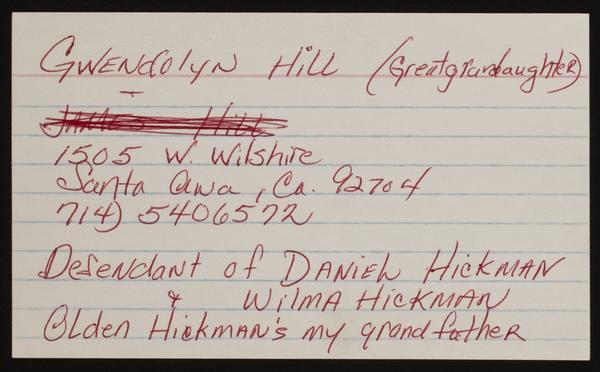 GWENdolyN Hill (Greatgrandaughter)
JAMES Hill
1505 W. Wilshire
Santa Ana, Ca. 92704
714) 5406572
Defendant of DANiEL HiCKMAN
& WilMA HiCKMAN
Olden Hickman's my grandfather